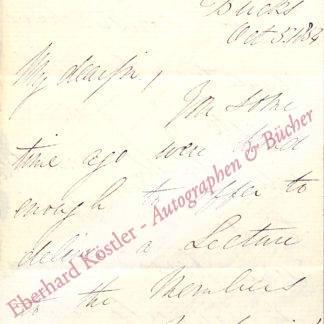 Bucks
Oct 5. 1884
My dear Sir,
You some
time ago were good
enough to offer to
deliver a Lecture
to the Members
Eberhard Köstler - Autographen & Bücher